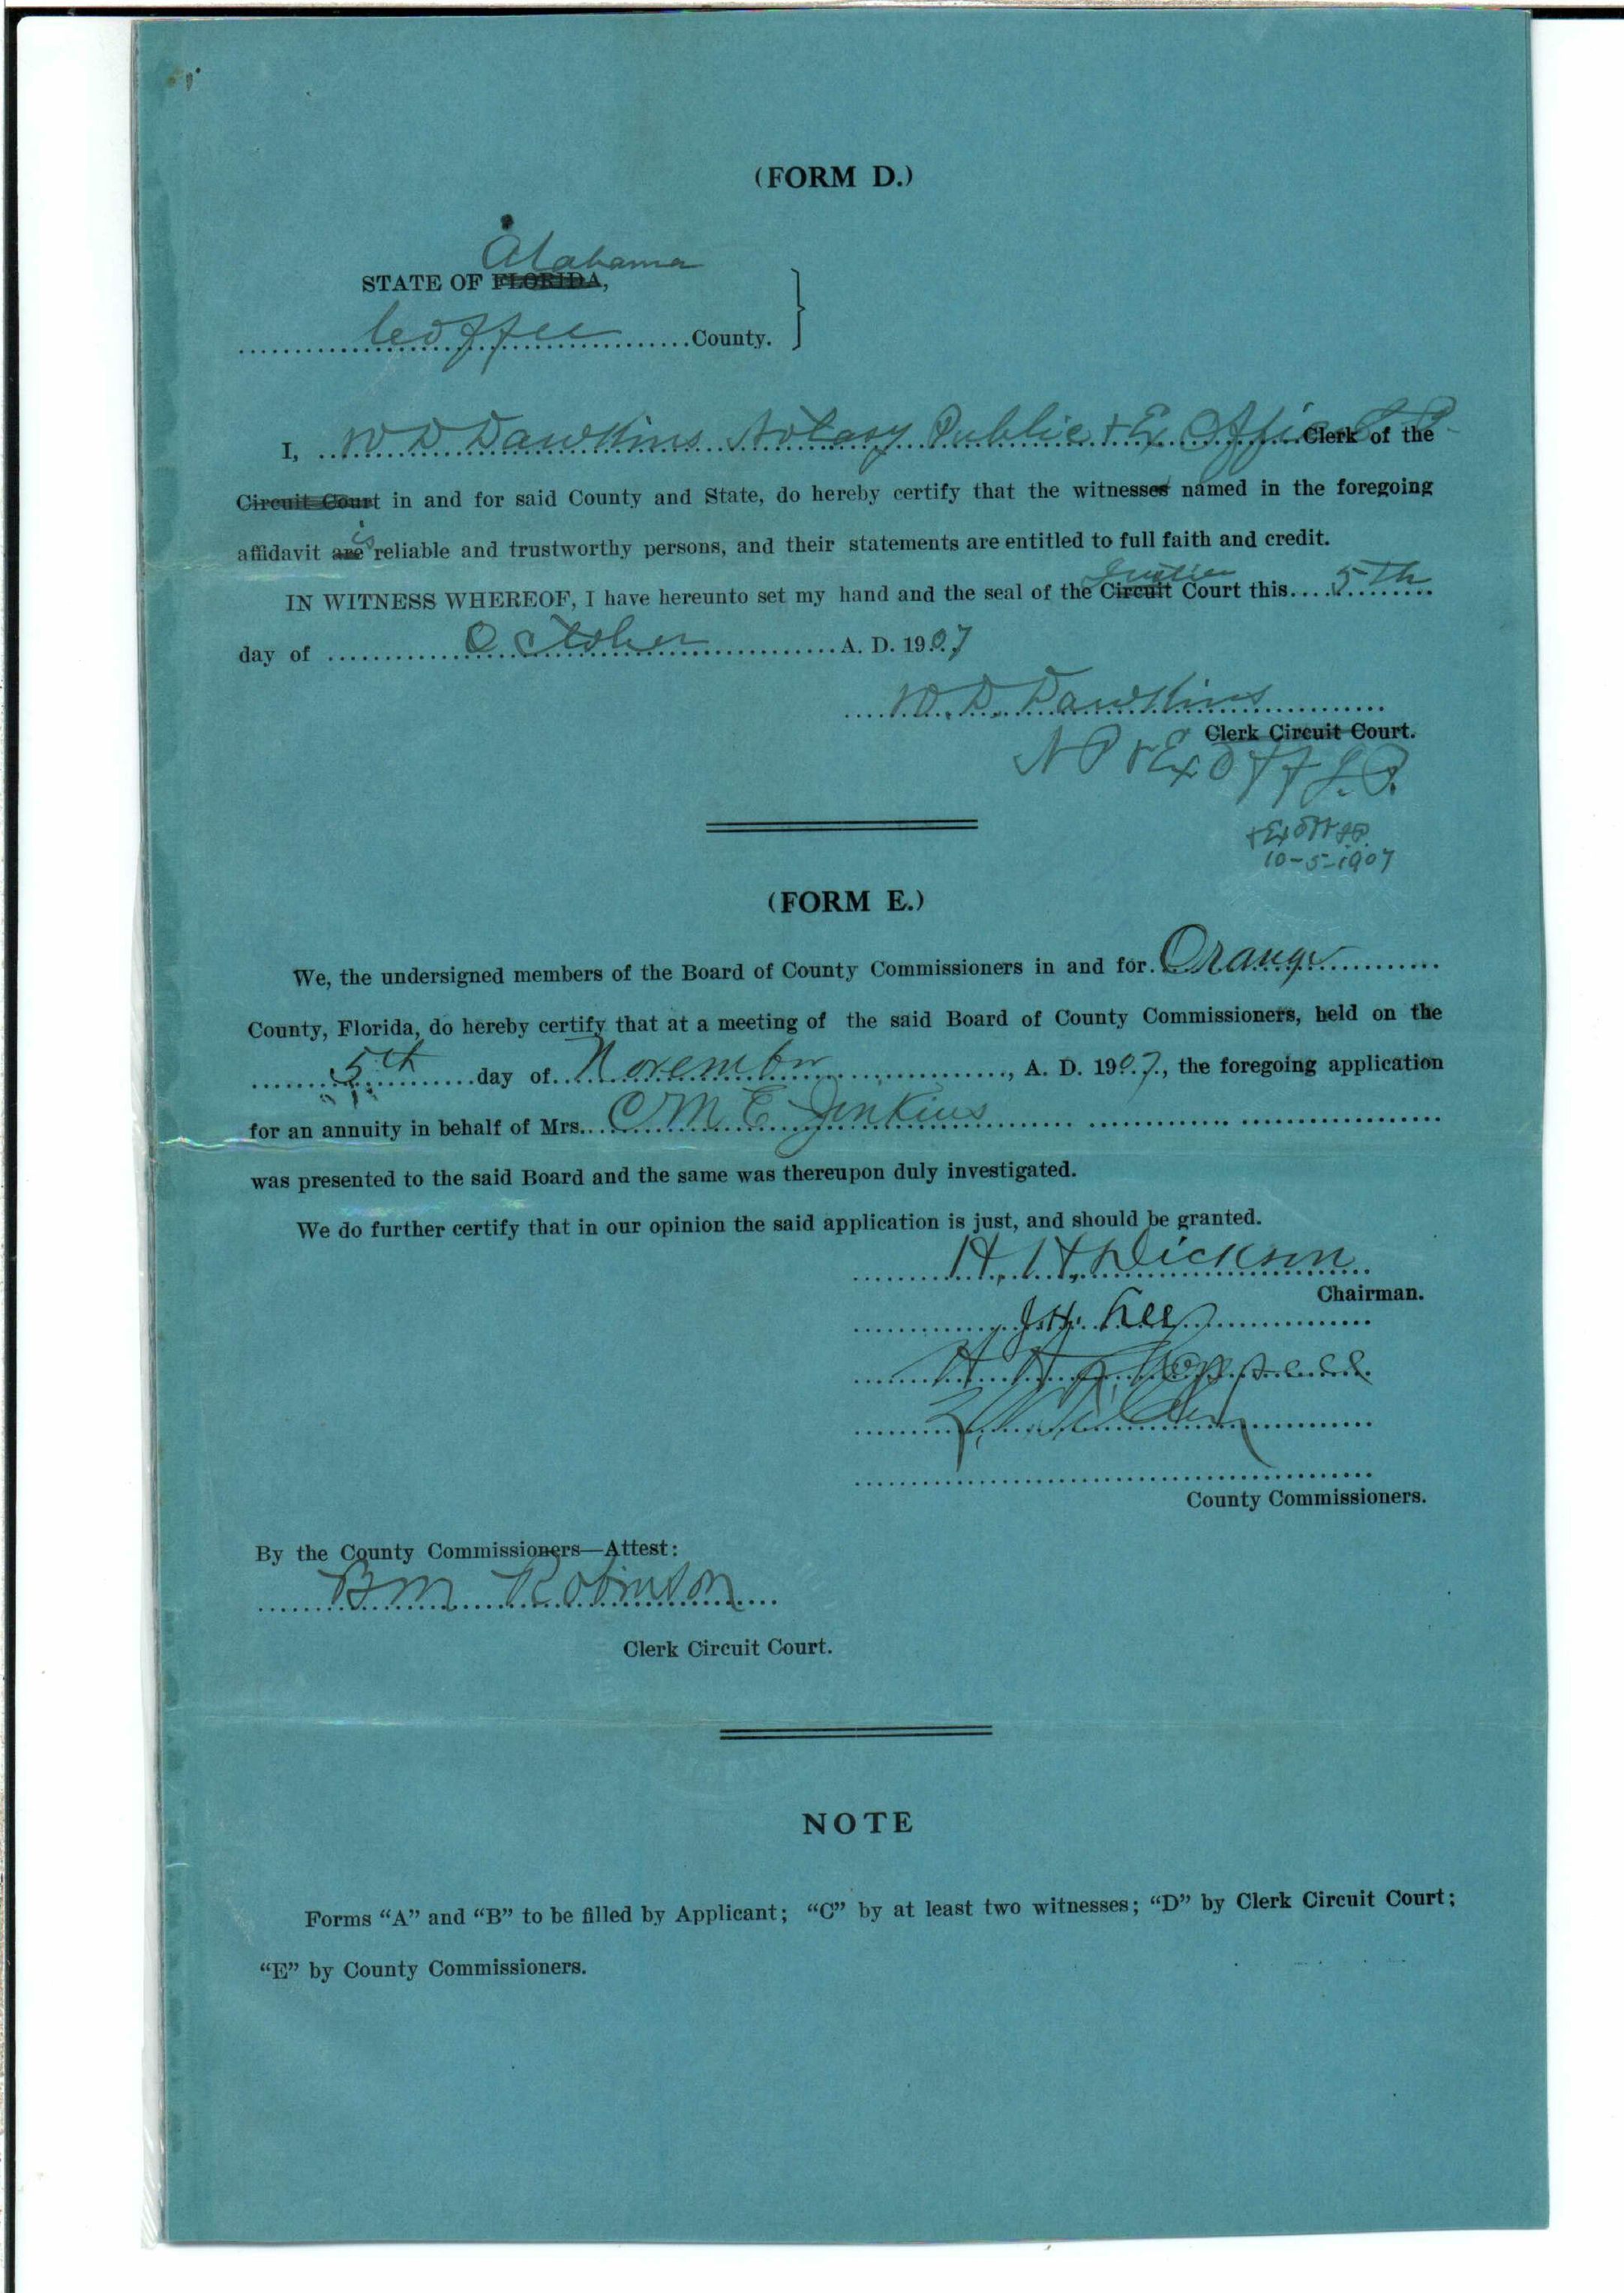 (FORM D.)
Alabama
STATE OF FLORIDA,
Coffee County.
I, W D Dawkins Notary Public & Ex Offic J. P. Clerk of the
Circuit Court in and for said County and State, do hereby certify that the witnesses named in the foregoing
is
affidavit are reliable and trustworthy persons, and their statements are entitled to full faith and credit.
Justice
IN WITNESS WHEREOF, I have hereunto set my hand and the seal of the Circuit Court this 5th
day of October A. D. 1907
W. D. Dawkins
Clerk Circuit Court.
N P & Ex Off J. P.
& Ex Off J P.
10-5-1907
(FORM E.)
We, the undersigned members of the Board of County Commissioners in and for Orange
County, Florida, do hereby certify that at a meeting of the said Board of County Commissioners, held on the
5th day of November, A. D. 1907, the foregoing application
for an annuity in behalf of Mrs. C M E Jenkins
was presented to the said Board and the same was thereupon duly investigated.
We do further certify that in our opinion the said application is just, and should be granted.
H. H. Dickson
Chairman.
J. H. Lee
County Commissioners.
By the County Commissioners—Attest:
B M Robinson
Clerk Circuit Court.
NOTE
Forms “A” and “B” to be filled by Applicant; “C” by at least two witnesses; “D” by Clerk Circuit Court;
“E” by County Commissioners.